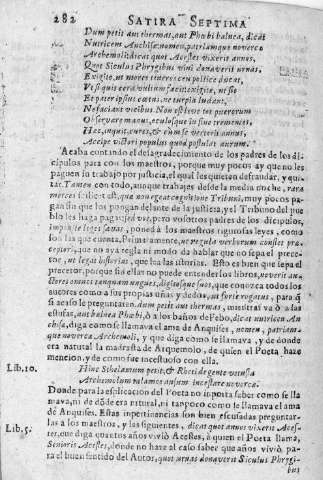 282 SATIRA SEPTIMA
Dum petit aut thermas, aut Phœbi balnea, dicat
Nutricem Anchisæ, nomen, patriamque novercæ
Archemoli: dicat quot Acestes vixerit annos,
Quot Siculus Phrygibus vini donaverit urnas.
Exigite, ut mores teneros ceu pollice ducat,
Ut si quis cera vultum facit: exigite, ut sit
Et pater ipsius cœtus: ne turpia ludant,
Ne faciant vicibus. Non est leve tot puerorum
Observare manus, oculosque in fine trementes.
Hæc, inquit, cures, & cum se verterit annus,
Accipe victori populus quod postulat aurum.
Acaba contando el desagradecimiento de los padres de los dicipulos para con los maestros, porque muy pocos ay que no les
paguen su trabajo por justicia, el qual les quieren defraudar, y quitar. Tamen
con todo, aunque trabajes desde la media noche, rara
merces, que non egeat cognitione Tribuni, muy pocos pagan
sin que los pongan delante de la justicia, y el Tribunal del pueblo
les haga pagar: sed vos, pero vosotros padres de los dicipulos,
imponite leges sævas, poned à los maestros rigurosas leyes, como
son las que cuenta. Primeramente, ut regula verborum constet præceptori,
que no aya regla ni modo de hablar que no sepa el preceptor,
ut legat historias, que lea las historias. Esto es bien que sepa el
precetor, porque sin ellas no puede entender los libros,
que conozca todos los
autores como à sus proprias uñas y dedos, ut forte rogatus, para que
si acaso le preguntaren, dum petit aut thermas, mientras và à las
estufas, aut balnea Phœbi, ò à los baños de Febo, dicat nutricem Anchisæ,
diga como se llamava el ama de Anquises, nomen, patriamque
novercæ Archemoli, y que diga como se llamava, y de donde
era natural la madrastra de Arquemolo, de quien el Poeta haze
mencion, y de como fue incestuosa con ella.
Lib. 10. Hinc Sthelænum petit, & Rhœti de gente vetusta
Archemolum thalamos ausum incestare novercæ.
Donde para la esplicacion del Poeta no importa saber como se llamava,
ni de donde era natural, ni tampoco como se llamava el ama
de Anquises. Estas impertinencias son bien escusadas preguntarlas
à los maestros, y las siguientes, dicat quot annos vixerit Acestes,
Lib. 5. que diga quantos años viviò Acestes, à quien el Poeta llama,
Senioris Acestes, donde no haze al caso saber que años viviò, para
el buen sentido del Autor, quot urnas donaverit Siculus Phrygibus